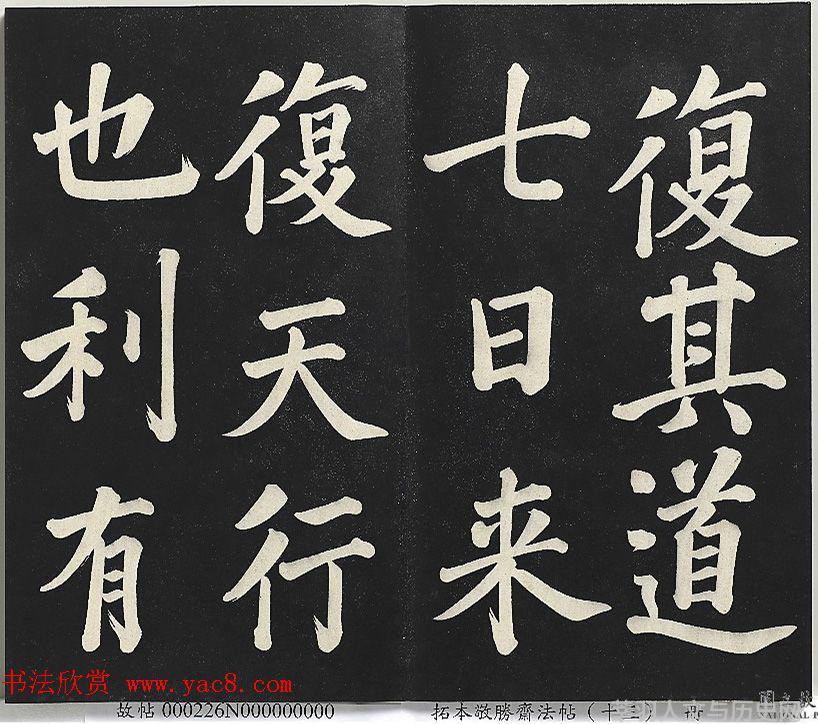 復其道
七日来
復天行
也利有
书法欣赏 www.yac8.com
故帖 000226N000000000
拓本敬勝齋法帖（十三）